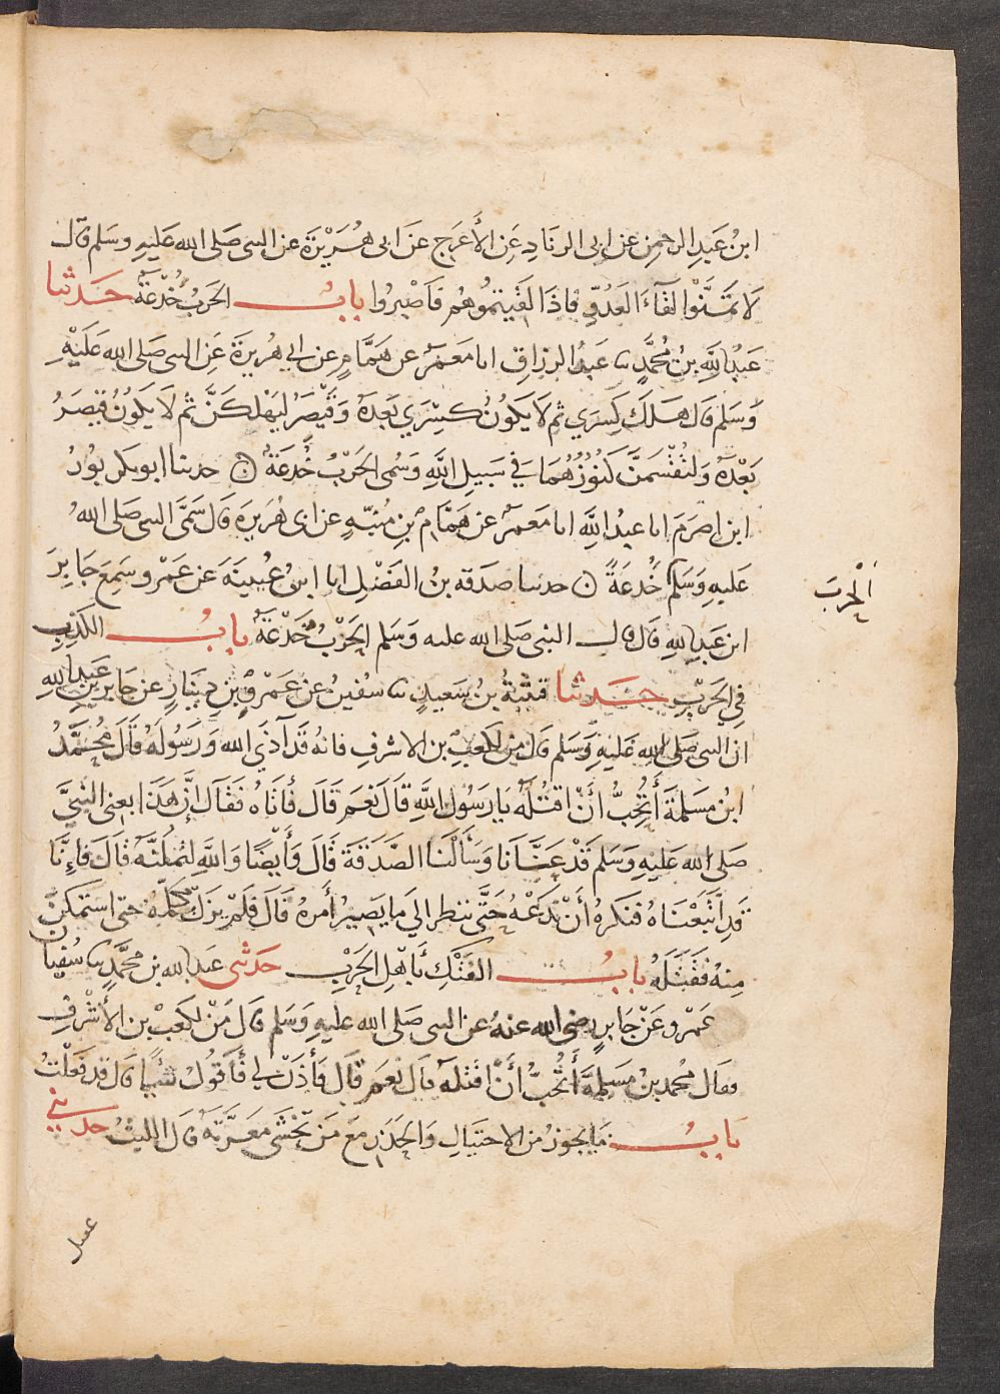 ابنُ عَبدِ الرحمن عن ابى الزنَادِ عَنِ الأَعرَج عَن ابى هُرَيْرَةَ عن النبى صَلى الله عَليهِ وسَلم قال
لَا تَمَنَّوْا لقَآءَ العَدُوِّ فاذَا لَقيتموُهُم فَاصْبِروُا بابُ الحَربُ خُدْعَةٌ حَدثنا
عَبدُ اللَّهِ بنُ مُحمَّدٍ ثنا عَبدُ الرزاقِ انا مَعمَرٌ عن هَمَّامٍ عن ابي هُريرةَ عَنِ النبى صَلى الله عَلَيْهِ
وَسَلم قال هَلَكَ كِسرَي ثم لَا يَكوُنُ كِسْرَي بَعدَهُ وَقَيْصَرُ ليَهْلكَنَّ ثم لَا يَكوُنُ قيصَرُ
بَعْدَهُ وَلتُقْسَمَنَّ كنُوُزُهُمَا فَي سَبيلِ اللَّهِ وَسُمى الحَرْبُ خُدعَةً حدثنا ابو بكر بُوُرُ
ابن اصرَمَ انا عبدُ اللَّهِ انا مَعمَرٌ عن هَمَّامِ بْنِ مُنبّهٍ عن ابى هُرَيرَةَ قال سَمَّى النبى صَلى اللهُ
عَليهِ وَسَلم خُدعَةً حدثنا صدَقه بنُ الفَضْلِ انا ابنُ عُيينَةَ عن عَمْرو سَمِعَ جَابِرَ
الْحَربَ
ابن عَبدِ اللهِ قَال قال النبى صَلى الله عليه وَسَلم الحَرْبُ خَدْعَةٌ بابُ الكَذِبِ
فِي الحَرْبِ حَدثنا قتيبَةُ بنُ سَعيدٍ ثنا سُفينُ عن عَمْرِو بْنِ دِينَارٍ عن جَابرِ بن عَبدِ اللهِ
ان النبى صَلى الله عَليهِ وَسَلم قال مَن لكَعبِ بن الاشرفِ فانهُ قَد آذَي الله وَرَسُولَهُ قَالَ مُحَمَّدُ
ابْنُ مَسلَمَةَ أَتُحِبُّ أَنْ اقتُلَهُ يَا رَسُولَ اللَّهِ قَالَ نَعَم قَالَ فَأَتَاهُ فَقَالَ إِنَّ هَذَا يعنى النبيَّ
صَلى الله عَليهِ وَسَلم قَدْ عَنَّانَا وَسَألَنَا الصَّدَقَةَ قَالَ وَأَيضًا وَاللَّهِ لتمَلُنَّهُ قَالَ فَإنَّا
قَد اتَّبَعْنَاهُ فنَكرهُ أَنْ نَدَعَهُ حَتَّى ننظرَ الَي مَا يَصيرُ أَمرهُ قَالَ فَلَمْ يزَل يُكَلّمُهُ حتى استَمكنَ
مِنهُ فَقَتَلَهُ بابُ الفَتْكِ بأَهلِ الحَرْبِ حَدثنى عَبد الله بن محمَّدٍ ثنا سُفيان
عَمْرو عَنْ جَابرٍ رضى الله عنهُ عن النبى صَلى الله عليهِ وَسَلم قال مَنْ لكَعبْ بن الأَشْرفِ
فقال مُحمد بنُ مَسلمَةَ أَتُحبُّ أَنْ اقتلهُ قال نعَم قَالَ فَأذَنْ لِي فَأَقوُلَ شَيئًا قال قد فَعَلْتُ
بَابُ مَا يجوزُ مِنَ الاحتيَالِ وَالحَذَرِ مَعَ مَن تَخْشَى مَعَرَّتَهُ قَالَ الليثُ حدثني
عقيل